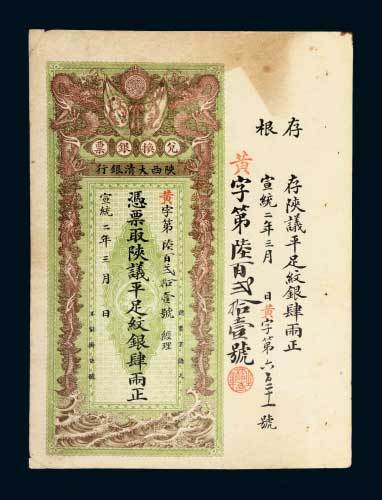 存根
存陝議平足紋銀肆兩正
宣統二年三月 日黃字第六百二十一號
黃字第陸百弍拾壹號
兌換銀票
陝西大清銀行
黃字第陸百弍拾壹號 經理
憑票取陝議平足紋銀肆兩正
宣統二年三月 日